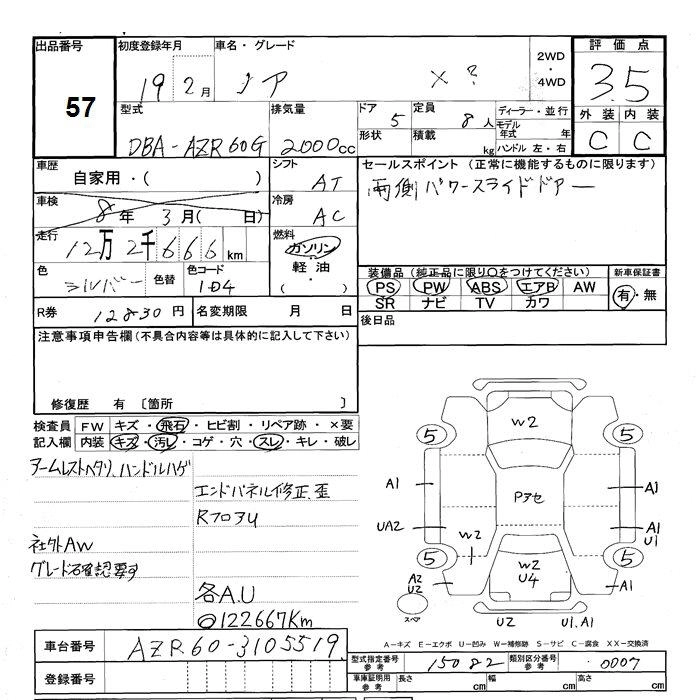 出品番号
57
初度登録年月
19 2月
車名・グレード
ノア X?
2WD
・
4WD
評価点
3.5
外装 内装
C C
型式
DBA-AZR60G
排気量
2000cc
ドア
5
形状
定員
8人
積載
kg
ディーラー・並行
モデル年式 年
ハンドル 左・右
車歴
自家用・( )
シフト
AT
セールスポイント (正常に機能するものに限ります)
両側パワースライドドアー
車検
8年 3月( 日)
冷房
AC
走行
12万2千666km
燃料
ガソリン
軽油
( ・ )
色
シルバー
色替
色コード
1D4
装備品 (純正品に限り○をつけてください)
PS PW ABS エアB AW
SR ナビ TV カワ
新車保証書
有・無
R券
12830円
名変期限
月 日
後日品
注意事項申告欄 (不具合内容等は具体的に記入して下さい)
修復歴 有 〔箇所
検査員
記入欄
FW キズ・飛石・ヒビ割・リペア跡・×要
内装 キズ・汚レ・コゲ・穴・スレ・キレ・破レ
アームレストヘタリ、ハンドルハゲ
エンドパネル修正、歪
RフロアU
社外AW
グレード確認要す
各A.U
◎122667Km
W2
5
5
A1
Pアセ
A1
UA2
W2
A1
U1
5
W2
U4
5
A2
U2
A1
スペア
U2
U1.A1
A-キズ E-エクボ U-凹み W-補修跡 S-サビ C-腐食 XX-交換済
車台番号
AZR60-3105519
登録番号
型式指定番号
参考
15082
類別区分番号
参考
0007
車庫証明用
参考
長さ
cm
幅
cm
高さ
cm